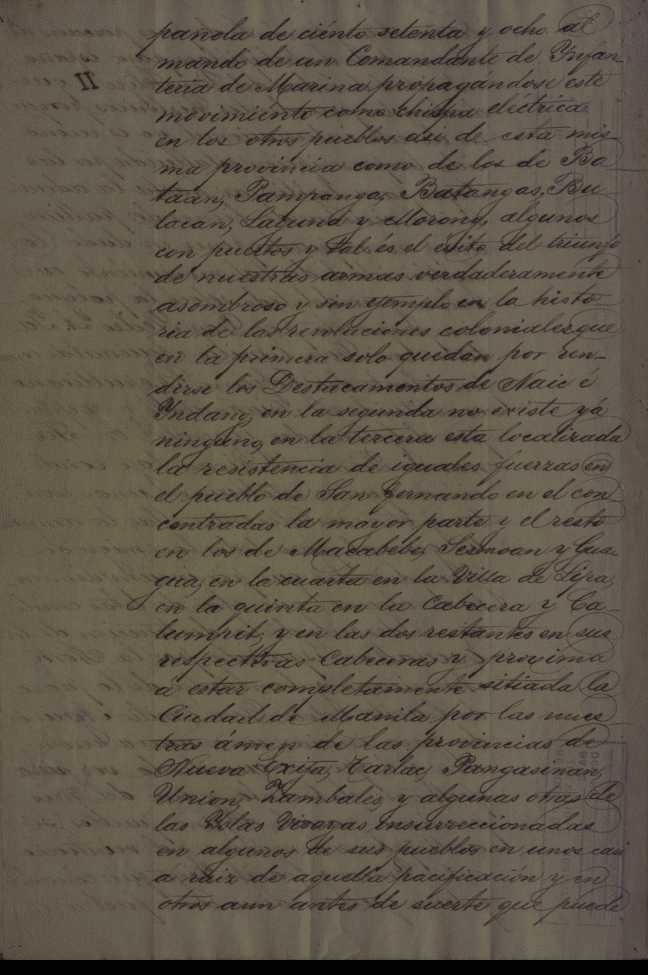 pañola de ciénto setenta y ocho al
mando de un Comandante de Ynfan-
teria de Marina propagándose este
II
movimiento como chispa eléctrica
en los otros pueblos asi de esta mis-
ma provincia como de los de Ba
taan, Pampanga, Batangas, Bu
lacan, Laguna y Morong, algunos
con puertos y tal es el éxito del triunfo
de nuestras armas verdaderamente
asombroso y sin egemplo en la histo
ria de las revoluciones coloniales que
en la primera solo quedan por ren-
dirse los Destacamentos de Naic é
Yndang, en la segunda no existe yá
ninguno, en la tercera esta localizada
la resistencia de iguales fuerzas en
el pueblo de San Fernando en el con
centradas la mayor parte y el resto
en los de Macabebe, Sexmoan y Gua-
gua, en la cuarta en la Villa de Lipa,
en la quinta en la Cabecera y Ca-
lumpit, y en las dos restantes en sus
respectivas Cabeceras y proxima
á estar completamente sitiada la
Ciudad de Manila por las nues
tras ámen de las provincias de
Nueva Exija, Tarlac, Pangasinan,
Union, Zambales, y algunas otras de
las Yslas Visayas insurreccionadas
en algunos de sus pueblos en unos casi
a raiz de aquella pacificación y en
otros aun antes de suerte que puede